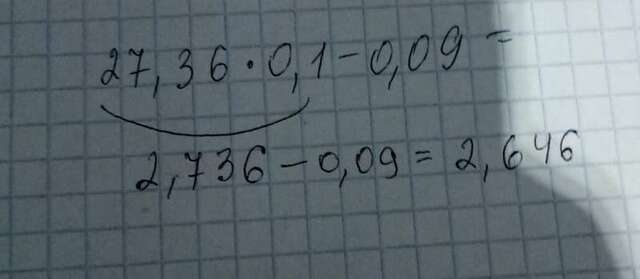 27,36·0,1-0,09=
2,736-0,09=2,646